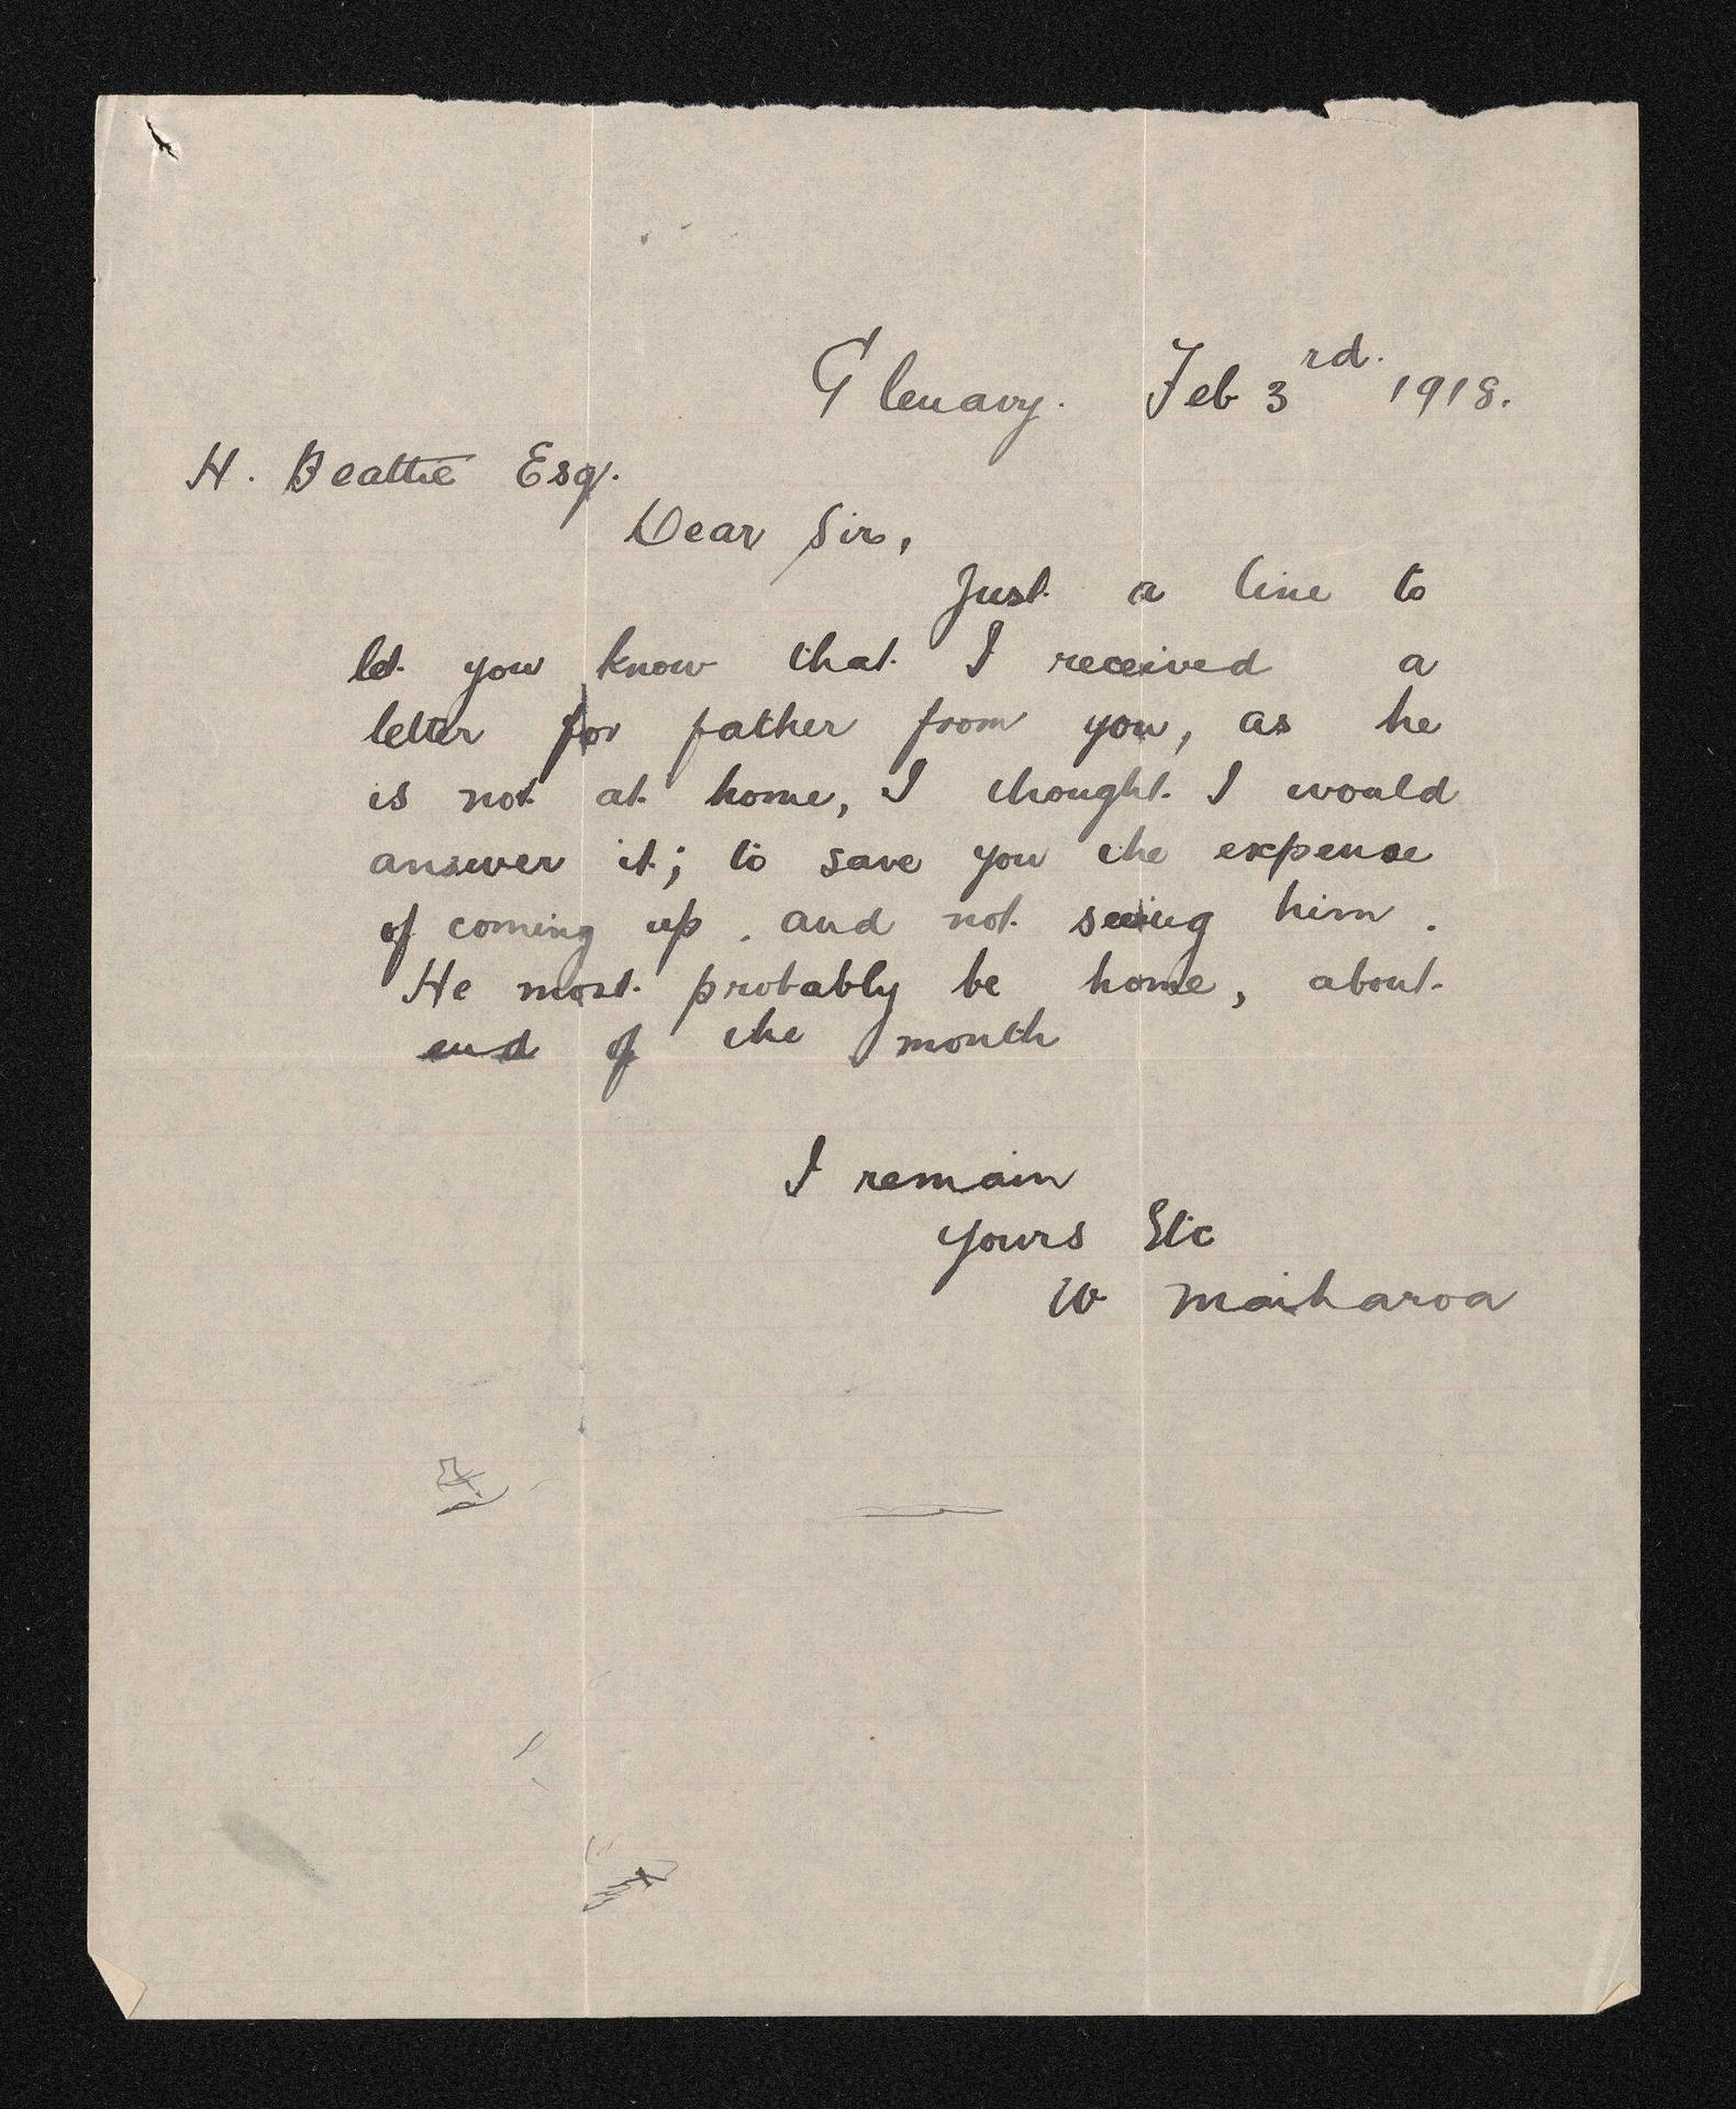 Glenavy. Feb 3rd. 1918.
H. Beattie Esq.
Dear Sir,
Just a line to
let you know that I received a
letter for father from you, as he
is not at home, I thought I would
answer it; to save you the expense
of coming up. and not seeing him.
He most probably be home, about
end of the month
I remain
yours Etc
W Maiharoa